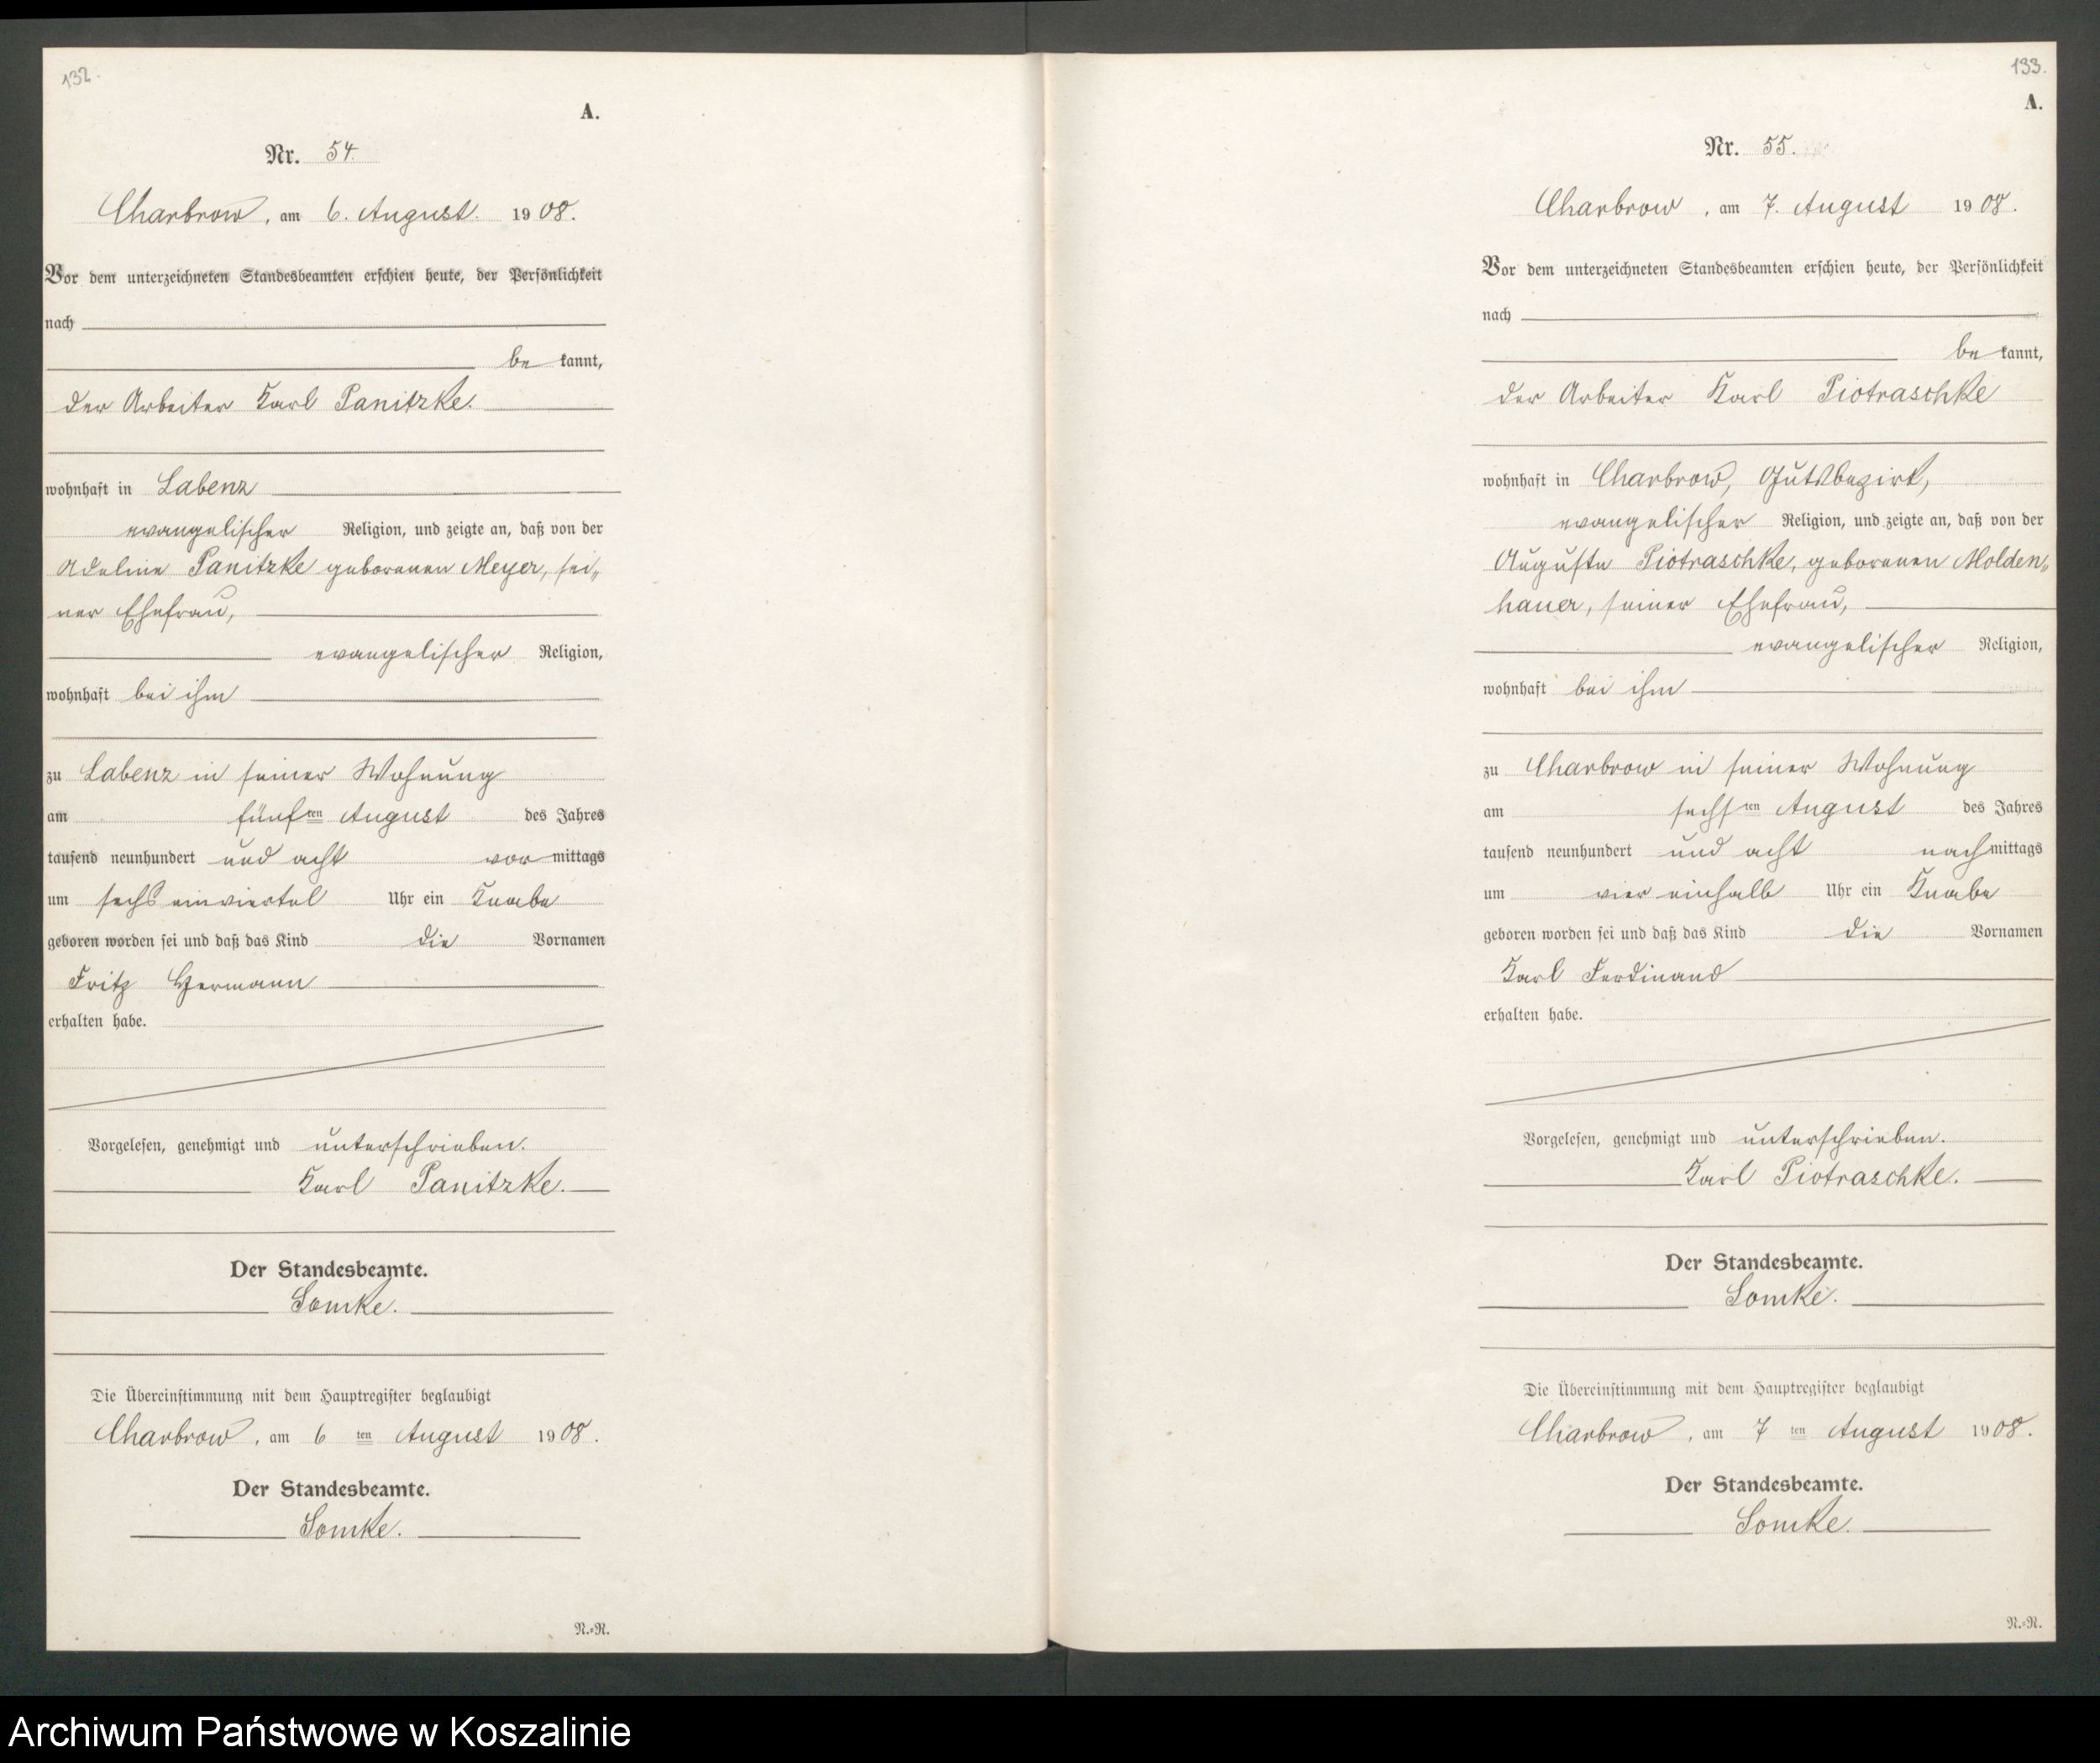 132.
A.
Nr. 54.
Charbrow, am 6. August. 1908.
Vor dem unterzeichneten Standesbeamten erschien heute, der Persönlichkeit
nach
be kannt,
der Arbeiter Karl Panitzke.
wohnhaft in Labenz
evangelischer Religion, und zeigte an, daß von der
Adeline Panitzke geborenen Meyer, sei„
ner Ehefrau,
evangelischer Religion,
wohnhaft bei ihm
zu Labenz in seiner Wohnung
am fünften August des Jahres
tausend neunhundert und acht vormittags
um sechs einviertel Uhr ein Knabe
geboren worden sei und daß das Kind die Vornamen
Fritz Hermann
erhalten habe.
Vorgelesen, genehmigt und unterschrieben.
Karl Panitzke.
Der Standesbeamte.
Die Übereinstimmung mit dem Hauptregister beglaubigt
Charbrow, am 6 ten August 1908.
Der Standesbeamte.
N.=R.
133.
A.
Nr. 55.
Charbrow, am 7. August 1908.
Vor dem unterzeichneten Standesbeamten erschien heute, der Persönlichkeit
nach
be kannt,
der Arbeiter Karl Piotraschke
wohnhaft in Charbrow, Gutsbezirk,
evangelischer Religion, und zeigte an, daß von der
Auguste Piotraschke, geborenen Molden„
hauer, seiner Ehefrau,
evangelischer Religion,
wohnhaft bei ihm
zu Charbrow in seiner Wohnung
am sechsten August des Jahres
tausend neunhundert und acht nachmittags
um vier einhalb Uhr ein Knabe
geboren worden sei und daß das Kind die Vornamen
Karl Ferdinand
erhalten habe.
Vorgelesen, genehmigt und unterschrieben.
Karl Piotraschke.
Der Standesbeamte.
Die Übereinstimmung mit dem Hauptregister beglaubigt
Charbrow, am 7 ten August 1908.
Der Standesbeamte.
N.=R.
Archiwum Państwowe w Koszalinie